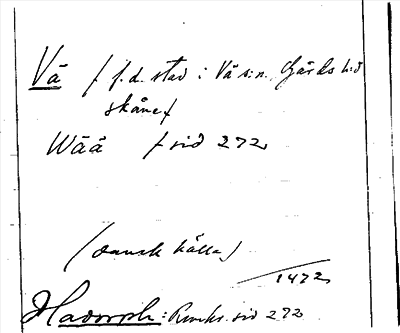 Vä / f.d. stad i Vä s:n. Gärds h:d
Skåne/
Wää / sid 272
(dansk källa)
1472
Hadorph: Rimkr. sid 272